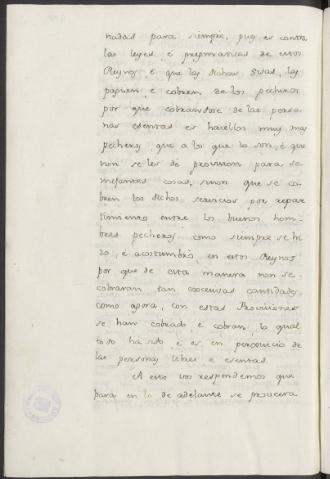 nadas para siempre, pues es contra
las leyes, é pregmaticas de estos
Reynos, é que las dichas Sisas, las
paguen, é cobren de los pecheros
por que cobrandose de las perso-
nas esentas es hacellos muy mas
pecheros, que a los que lo son, é que
non se les dé provision para se-
mejantes cosas, sinon que se co-
bren los dichos servicios por repar-
timiento entre los buenos hom-
bres pecheros como siempre se hi-
zo, é acostumbró, en estos Reynos
por que de esta manera non se
cobraran tan excesivas cantidades,
como agora, con estas Provisiones
se han cobrado é cobran, lo qual
todo ha sido é es en perjuicio de
las personas libres é esentas.
A esto vos respondemos que
para en lo de adelante se proveerá